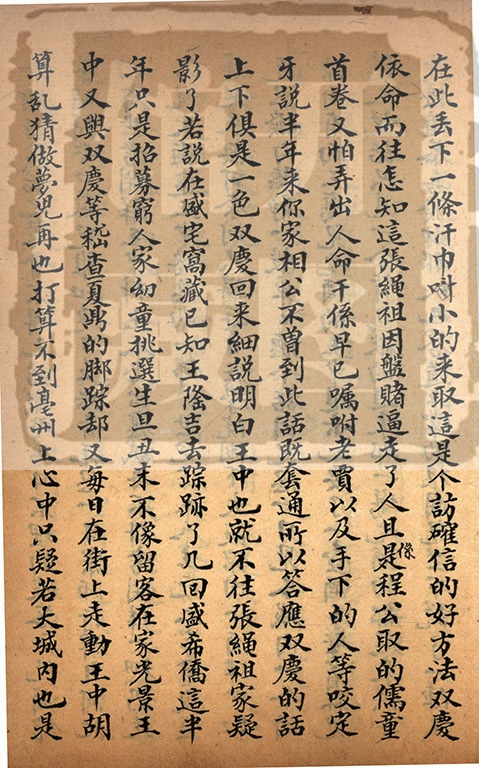 在此丢下一條汗巾叫小的来取這是个訪確信的好方法双慶
依命而往怎知這張绳祖因盤賭逼走了人且是係程公取的儒童
首卷又怕弄出人命干係早已嘱咐老賈以及手下的人等咬定
牙説半年来你家相公不曽到此話既套通所以答應双慶的話
上下俱是一色双慶回来細説明白王中也就不往張绳祖家疑
影了若説在盛宅窩藏已知王隆吉去踪跡了几回盛希僑這半
年只是招募窮人家幼童挑選生旦丑末不像留客在家光景王
中又與双慶等嵇查夏鼎的脚踪却又每日在街上走動王中胡
算乱猜做夢児再也打算不到亳州上心中只疑若大城内也是